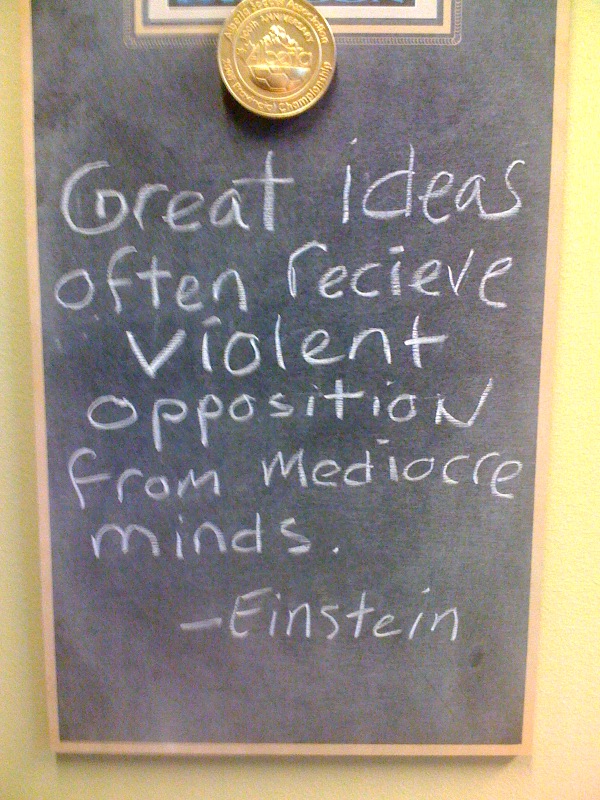 100TH ANNIVERSARY
Provincial Championship
Great ideas
often recieve
violent
opposition
from mediocre
minds.
-Einstein